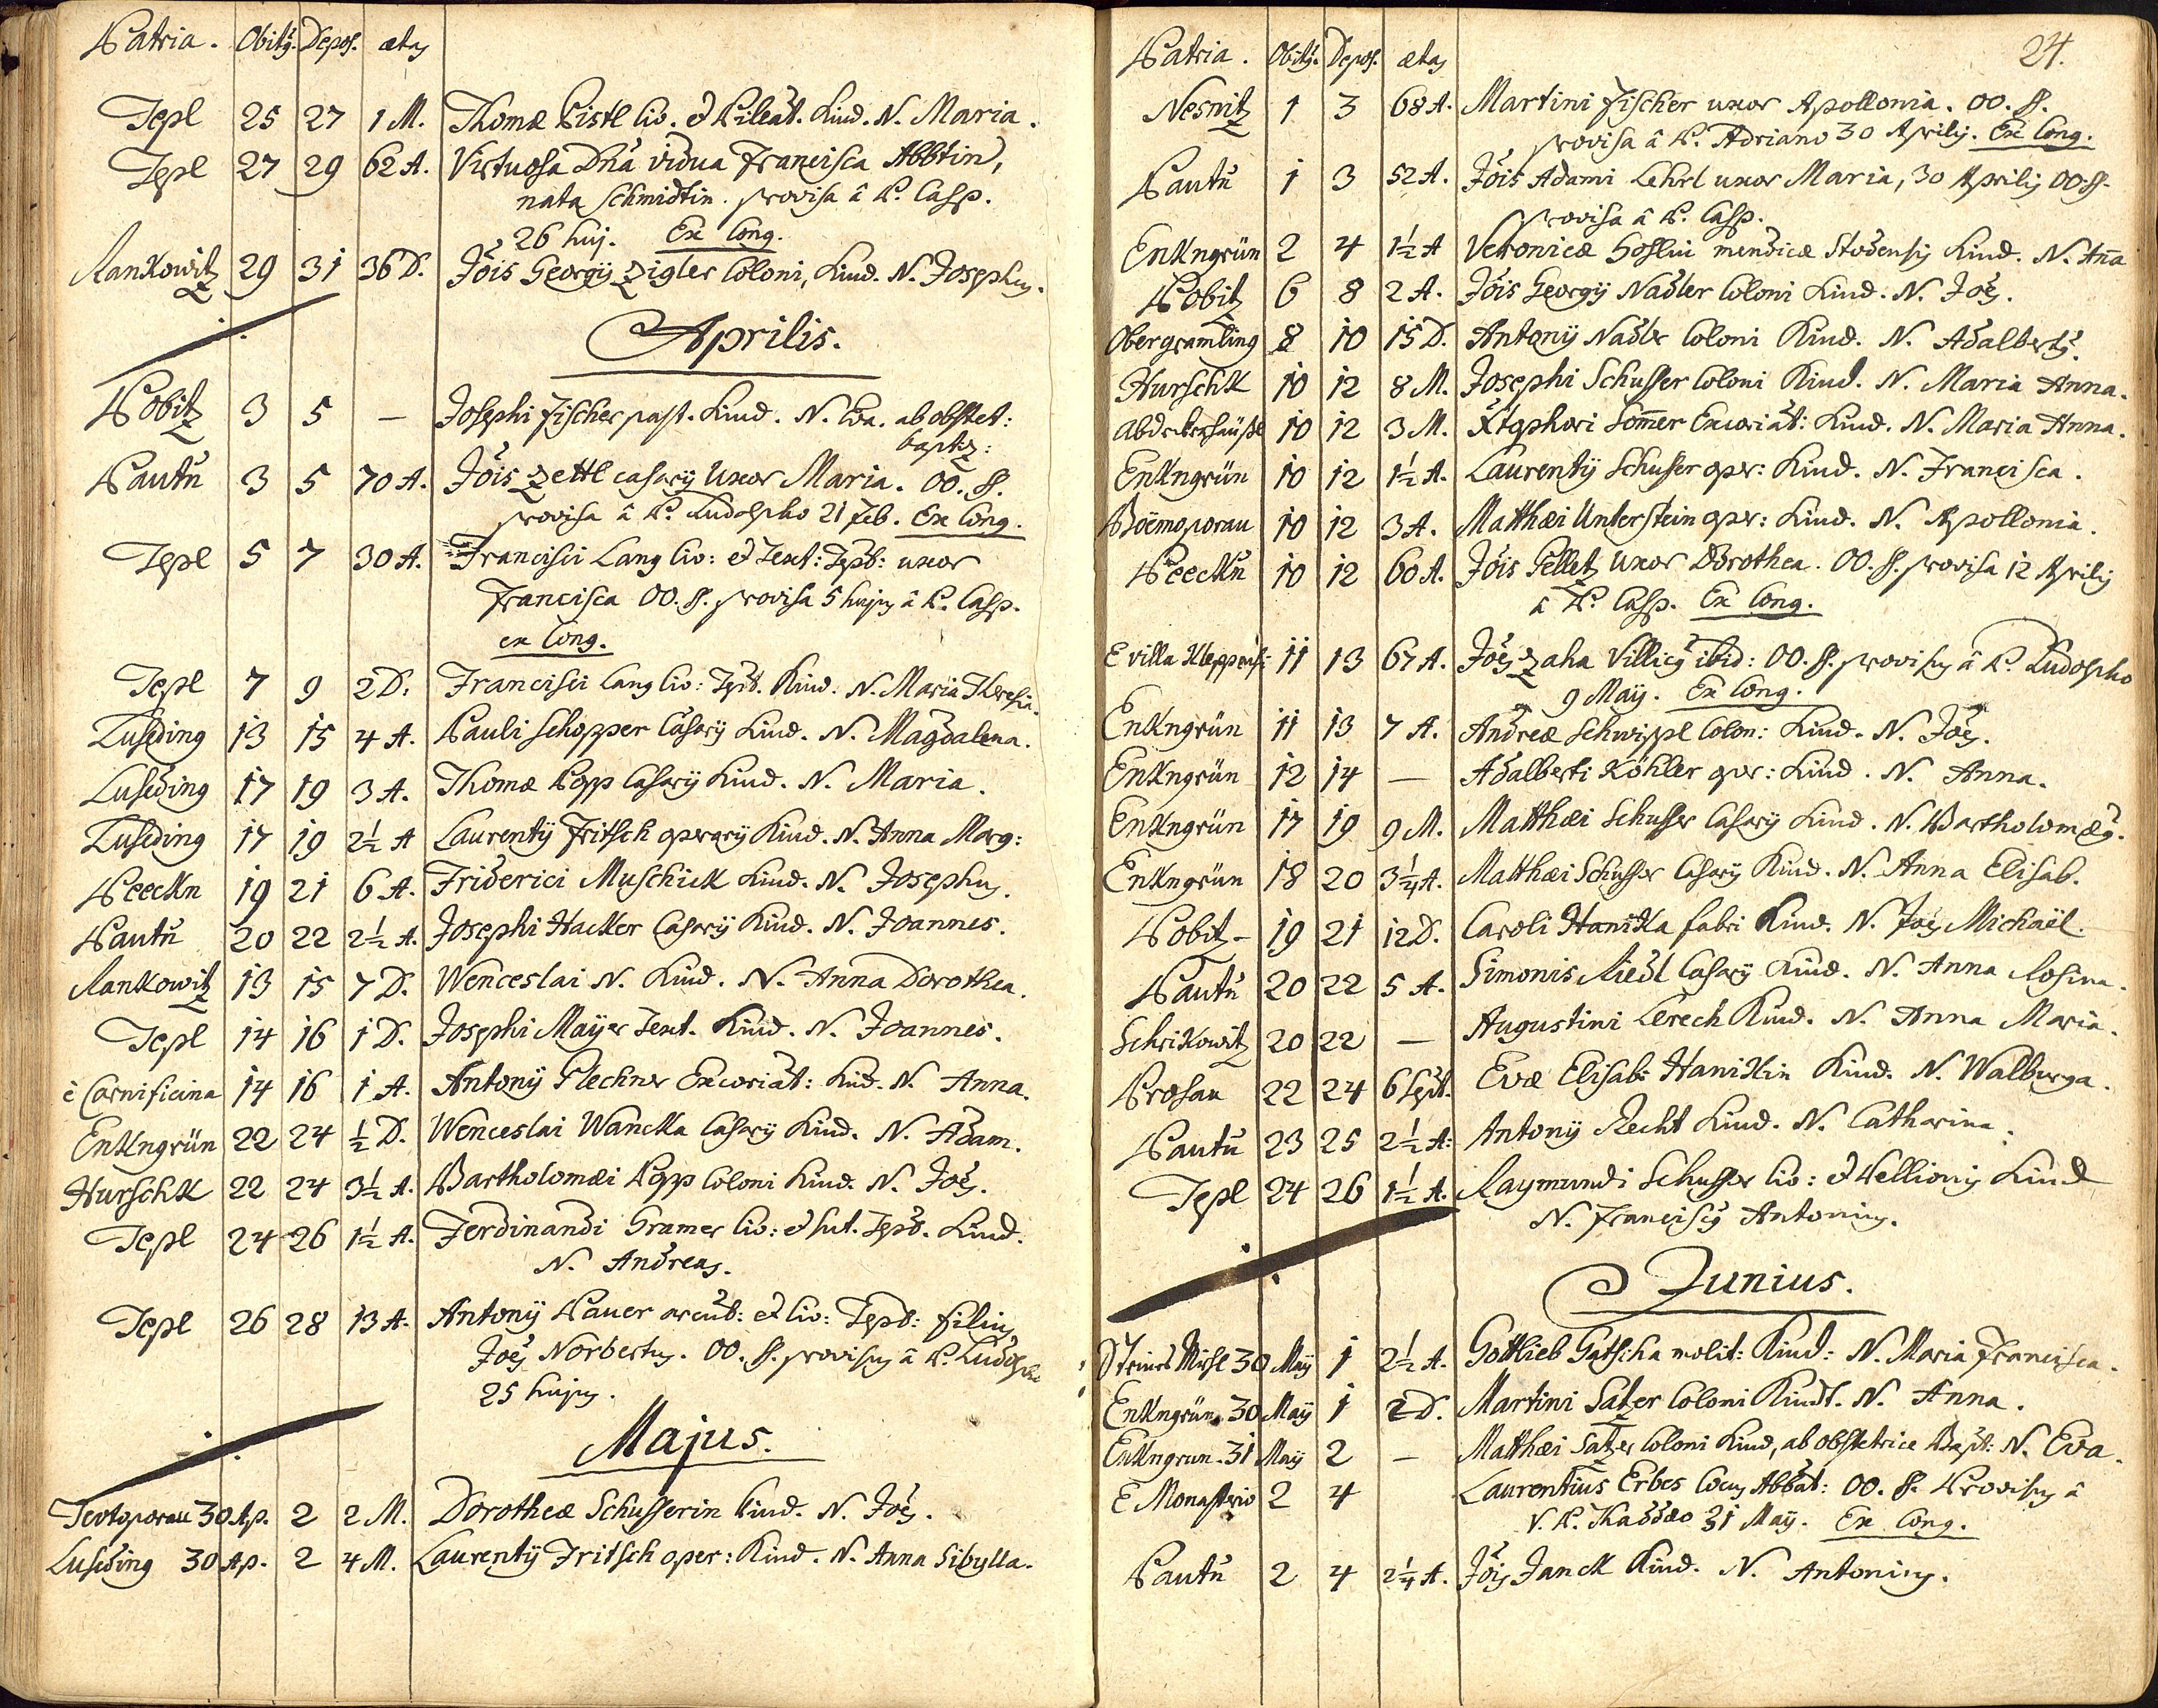 Patria. Obitus. Depos. ætas
Tepl 25 27 1 M. Thomæ Pistl Civ. et Pileat. Kind. N. Maria.
Tepl 27 29 62 A. Virtuosa Dna vidua Francisca Abbtin,
nata Schmidtin. provisa â P. Casp.
26 huj. Ex Cong.
Rankowitz 29 31 36 D. Jois Georgÿ Zigler Coloni, Kind. N. Josephus.
Aprilis.
Pobitz 3 5 — Josephi Fischer past. Kind. N. Eva. ab obstet:
baptiz:
Pautn 3 5 70 A. Jois Zettl casarÿ Uxor Maria. OO. SS.
provisa â P. Ludolpho 21 Feb. Ex Cong.
Tepl 5 7 30 A. Francisci Lang Civ: et Text: Tepl: uxor
Francisca OO. SS. provisa 5 hujus â P. Casp.
ex Cong.
Tepl 7 9 2 D. Francisci Lang Civ: Tepl. Kind. N. Maria Theresia.
Lusading 13 15 4 A. Pauli Schopper Casarÿ Kind. N. Magdalena.
Lusading 17 19 3 A. Thomæ Popp Casarÿ Kind. N. Maria.
Lusading 17 19 2½ A Laurentÿ Fritsch operarÿ Kind. N. Anna Marg:
Peeckn 19 21 6 A. Friderici Muschick Kind. N. Josephus.
Pautn 20 22 2½ A. Josephi Hacker Casarÿ Kind. N. Joannes.
Rankowitz 13 15 7 D. Wenceslai N. Kind. N. Anna Dorothea.
Tepl 14 16 1 D. Josephi Maÿer Text. Kind. N. Joannes.
è Carnificina 14 16 1 A. Antonÿ Plechner Excoriat: Kind. N. Anna.
Enkngrün 22 24 ½ D. Wenceslai Wancka Casarÿ Kind. N. Adam.
Hurschk 22 24 3½ A. Bartholomæi Popp Coloni Kind. N. Joës.
Tepl 24 26 1½ A. Ferdinandi Gramer Civ: et Sut. Tepl. Kind.
N. Andreas.
Tepl 26 28 13 A. Antonÿ Pauer arcul: et Civ: Tepl: filius
Joës Norbertus. OO. SS. provisus â P. Ludolpho
25 hujus.
Majus.
30 Ap. 2 2 M. Dorotheæ Schusserin Kind. N. Joës.
Lusading 30 Ap. 2 4 M. Laurentÿ Fritsch oper: Kind. N. Anna Sibylla.
24.
Patria. Obitus. Depos. ætas
Nesnitz 1 3 68 A. Martini Fischer uxor Apollonia. OO. SS.
provisa â P. Adriano 30 Aprilis. Ex Cong.
Pautn 1 3 52 A. Jois Adami Lehrl uxor Maria, 30 Aprilis OO. SS.
provisa â P. Casp.
Enkngrün 2 4 1½ A Veronicæ mendicæ Kind. N. Anna
Pobitz 6 8 2 A. Jois Georgÿ Nadler Coloni Kind. N. Joës.
Obergramling 8 10 15 D. Antonÿ Nadler Coloni Kind. N. Adalbertus.
Hurschk 10 12 8 M. Josephi Schusser Coloni Kind. N. Maria Anna.
Abdekerhäusl 10 12 3 M. Xtophori Sommer Excoriat: Kind. N. Maria Anna.
Enkngrün 10 12 1½ A. Laurentÿ Schusser oper: Kind. N. Francisca.
Böemoporau 10 12 3 A. Matthæi Unterstein oper: Kind. N. Apollonia.
Peeckn 10 12 60 A. Jois Pelletz Uxor Dorothea. OO. SS. provisa 12 Aprilis
â P. Casp. Ex Cong.
E villa Kleppensi 11 13 67 A. Joës Zaha Villicus ibid: OO. SS. provisus â P. Ludolpho
9 Maÿ. Ex Cong.
Enkngrün 11 13 7 A. Andreæ Schwippl Colon: Kind. N. Joës.
Enkngrün 12 14 — Adalberti Köhler oper: Kind. N. Anna.
Enkngrün 17 19 9 M. Matthæi Schusser Casarÿ Kind. N. Bartholomæus.
Enkngrün 18 20 3¼ A. Matthæi Schusser Casarÿ Kind. N. Anna Elisab.
Pobitz 19 21 12 D. Caroli Hanika fabri Kind. N. Joës Michaël.
Pautn 20 22 5 A. Simonis Riedl Casarÿ Kind. N. Anna Rosina.
Schrikowitz 20 22 — Augustini Lerech Kind. N. Anna Maria.
Prosau 22 24 6 Sept. Evæ Elisab: Hanikin Kind. N. Walburga.
Pautn 23 25 2½ A: Antonÿ Recht Kind. N. Catharina.
Tepl 24 26 1½ A. Raymundi Schusser Civ: et Pellionis Kind
N. Franciscus Antonius.
Junius.
30 Maÿ 1 2½ A. Gottlieb Gatscha molit: Kind: N. Maria Francisca.
Enkngrün 30 Maÿ 1 2 D. Martini Satzer Coloni Kindt. N. Anna.
Enkngrun. 31 Maÿ 2 — Matthæi Satzer Coloni Kind, ab obstetrice Bapt: N. Eva.
E Monasterio 2 4 Laurentius Erbes Cocus Abbat: OO. SS. Provisus â
V. P. Thaddæo 31 Maÿ. Ex Cong.
Pautn 2 4 2¼ A. Jois Janck Kind. N. Antonius.